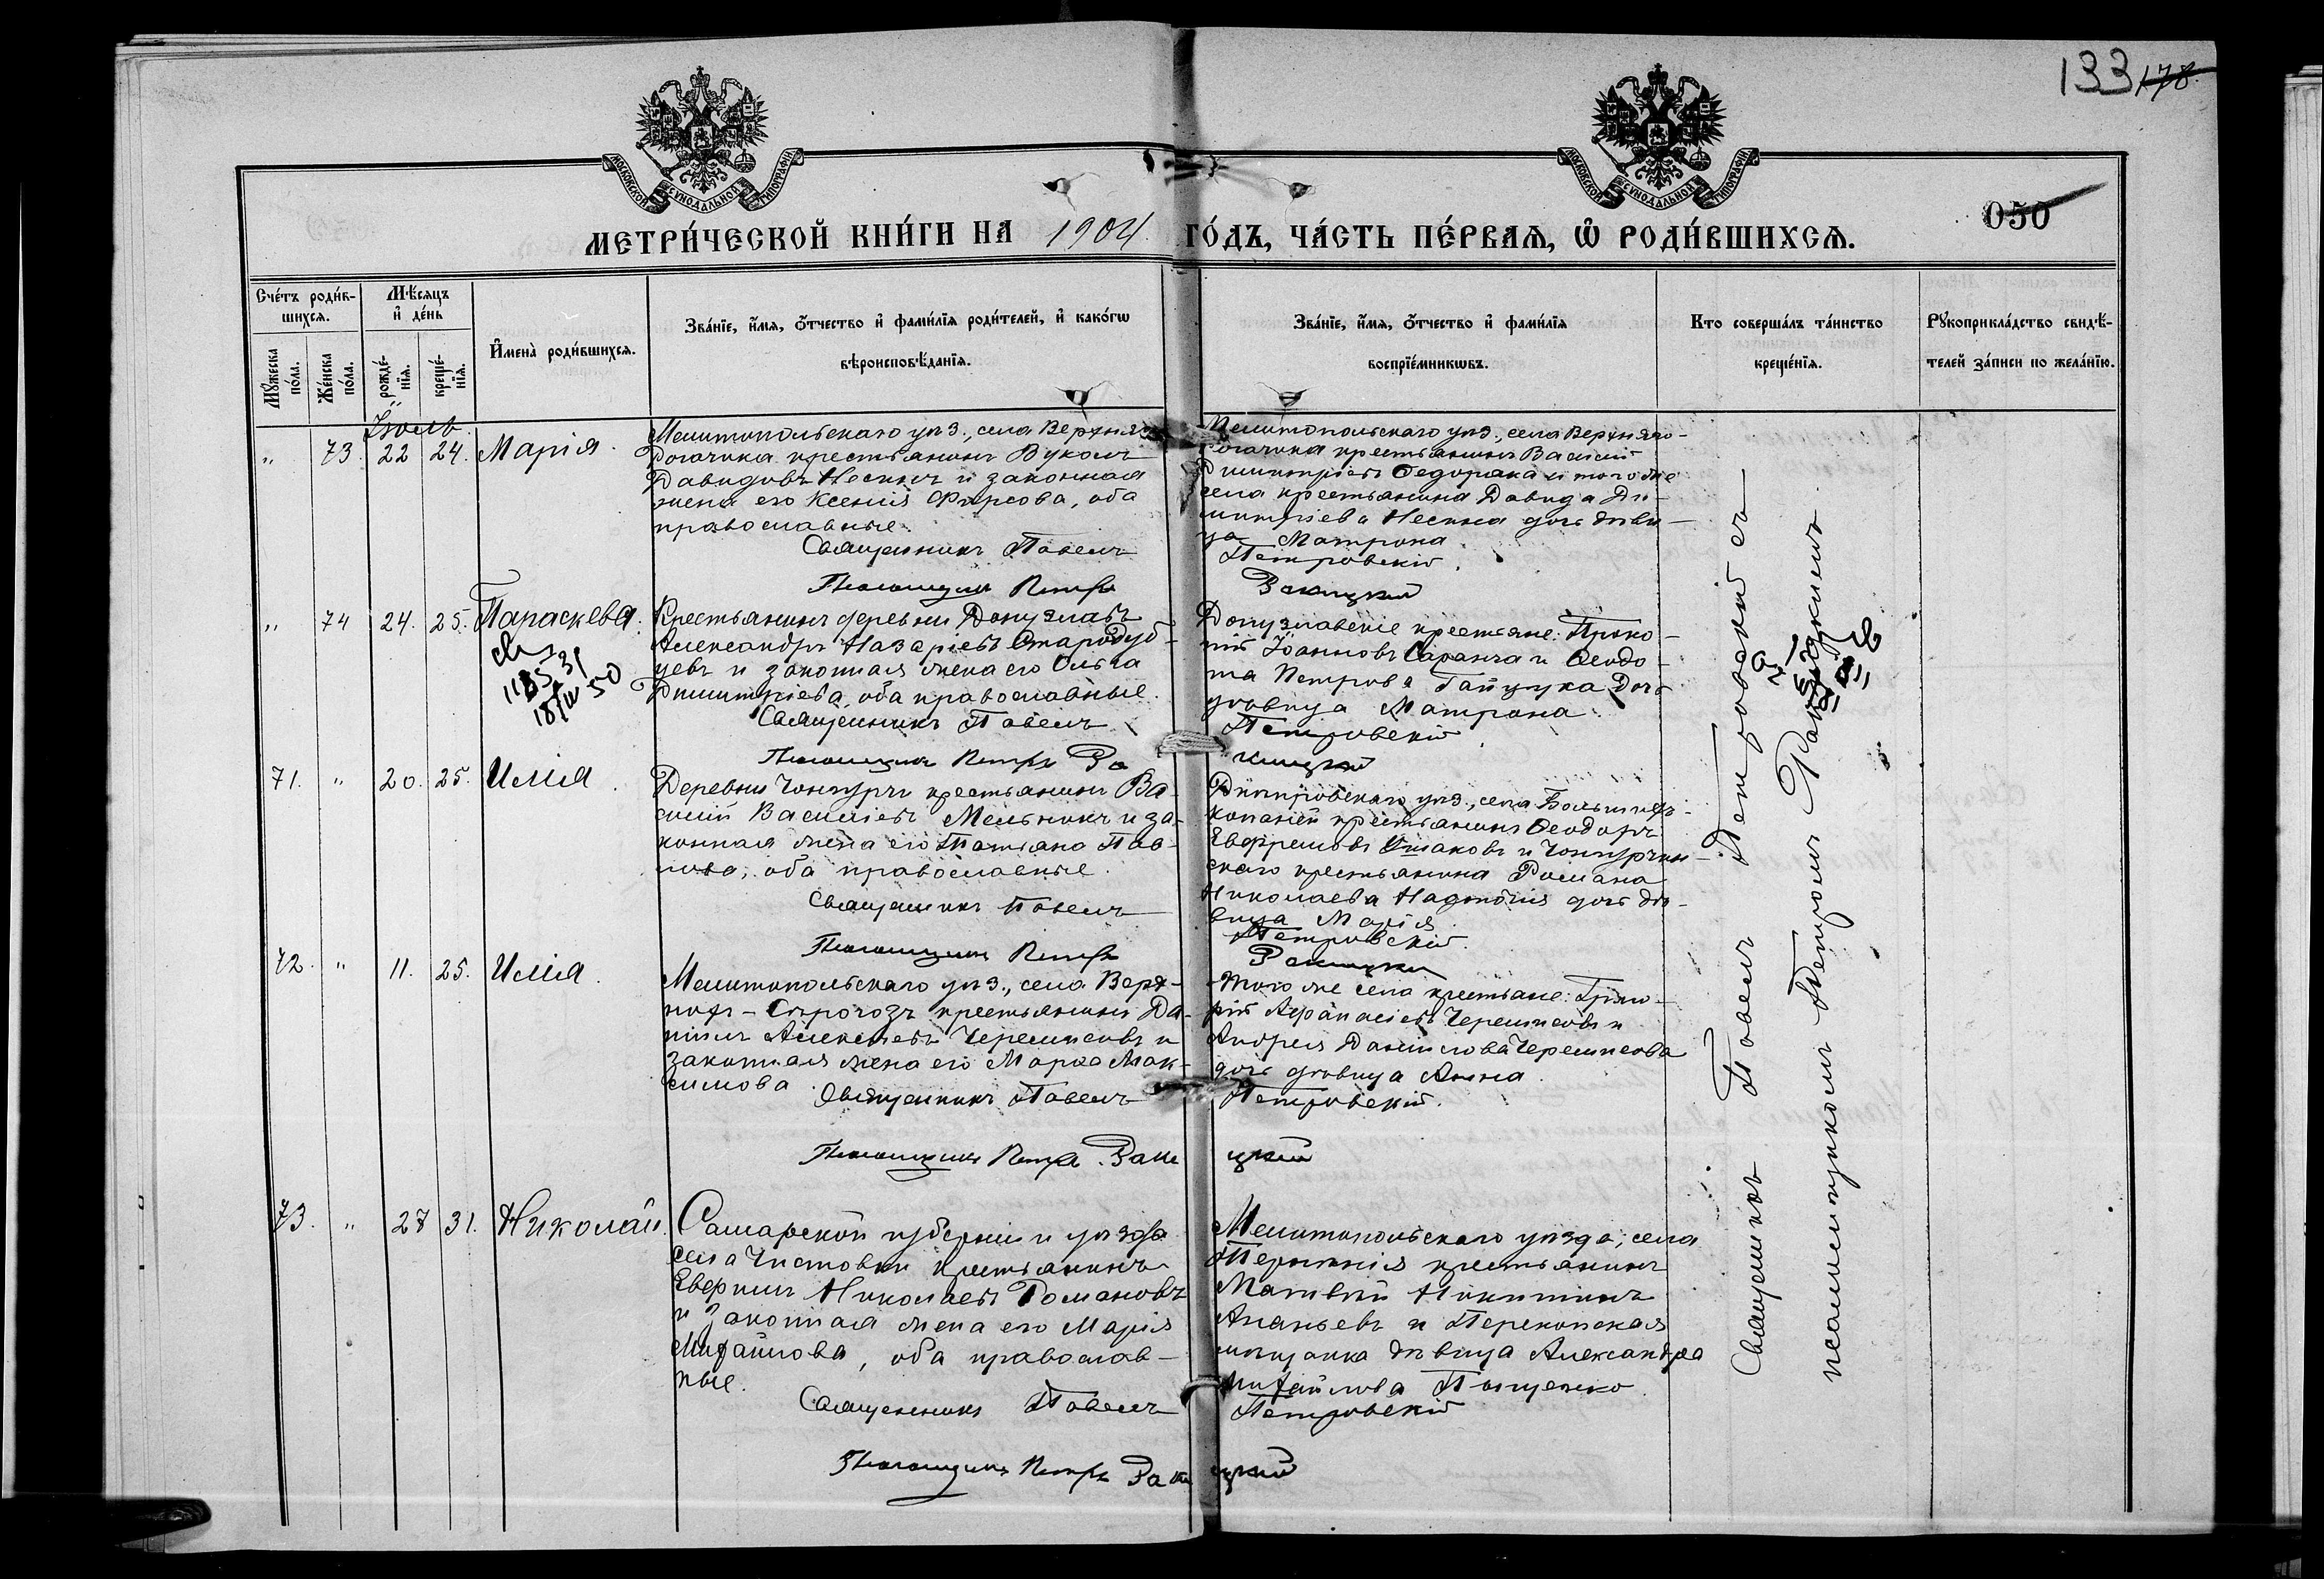 133 178.
МОСКОВСКОЙ СѴНОДАЛЬНОЙ ТИПОГРАФІИ
МОСКОВСКОЙ СѴНОДАЛЬНОЙ ТИПОГРАФІИ
050
МЕТРИ́ЧЕСКОЙ КНИ́ГИ НА 1904 ГО́ДЪ, ЧА́СТЬ ПЕ́РВАѦ, Ѡ҆ РОДИ́ВШИХСѦ.
Сче́тъ роди́в-
шихсѧ.
Мꙋ́жеска
по́ла.
Же́нска
по́ла.
Мѣ́сѧцъ
и҆ де́нь
рожде́-
нїѧ.
креще́-
нїѧ.
И҆мена̀ роди́вшихсѧ.
Зва́нїе, и҆́мѧ, ѻ҆́тчество и҆ фами́лїѧ роди́телей, и҆ како́гѡ
вѣроисповѣ́данїѧ.
Зва́нїе, и҆́мѧ, ѻ҆́тчество и҆ фами́лїѧ
воспрїе́мникѡвъ.
Кто соверша́лъ та́инство
креще́нїѧ.
Рꙋкоприкла́дство свидѣ́-
телей за́писи по жела́нїю.
Іюль
" 73. 22 24. Марія.
Мелитопольскаго уѣз., села Верхняго
Рогачика крестьянинъ Вуколъ
Давидовъ Нескинъ и законная
жена его Ксенія Фирсова, оба
православные.
Священникъ Павелъ
Псаломщикъ Петръ
Мелитопольскаго уѣз., села Верхняго-
Рогачика крестьянинъ Василій
Димитріевъ Федорака и того же
села крестьянина Давида Ди-
митріева Нескина дочь дѣви-
ца Матрона.
Петровскій.
Закицкій
" 74 24. 25. Параскева.
18/IV 50
Крестьянинъ деревни Донузлавъ
Александръ Назаріевъ Стародуб-
цевъ и законная жена его Ольга
Димитріева, оба православные.
Священникъ Павелъ
Псаломщикъ Петръ За
Донузлавскіе крестьяне: Проко-
пій Іоанновъ Саранча и Феодо-
та Петрова Гайдука дочь
дѣвица Матрона.
Петровскій
кицкій
71. " 20. 25. Илія.
Деревни Чонгуръ крестьянинъ Ва-
силій Васильевъ Мельникъ и за-
конная жена его Татьяна Пав-
лова, оба православные.
Священникъ Павелъ
Псаломщикъ Петръ
Днѣпровскаго уѣз., села Большихъ-
Копаней крестьянинъ Феодоръ
Евфремовъ Ушаковъ и Чонгурчин-
скаго крестьянина Романа
Николаева дочь дѣ-
вица Марія
Петровскій.
Закицкій
72. " 11. 25. Илія.
Мелитопольскаго уѣз., села Верх-
нихъ-Сѣрогозъ крестьянинъ Да-
ніилъ Алексѣевъ Черемисовъ и
законная жена его Марѳа Мак-
симова.
Священникъ Павелъ
Псаломщикъ Петръ Заки
Того же села крестьяне: Григо-
рій Афанасіевъ Черемисовъ и
Андрея Даніилова Черемисова
дочь дѣвица Анна.
Петровскій.
цкій
73. " 27 31. Николай.
Самарской губерніи и уѣзда
села Чистовки крестьянинъ
Николаевъ Романовъ
и законная жена его Марія
Михайлова, оба православ-
ные.
Священникъ Павелъ
Псаломщикъ Петръ Заки
Мелитопольскаго уѣзда, села
Терпѣнія крестьянинъ
Матвѣй Никитинъ
Ананьевъ и Перекопская
мѣщанка дѣвица Александра
Михайлова Пащенко.
Петровскій
цкій
Священникъ Павелъ Петровскій съ
псаломщикомъ Петромъ Закицкимъ